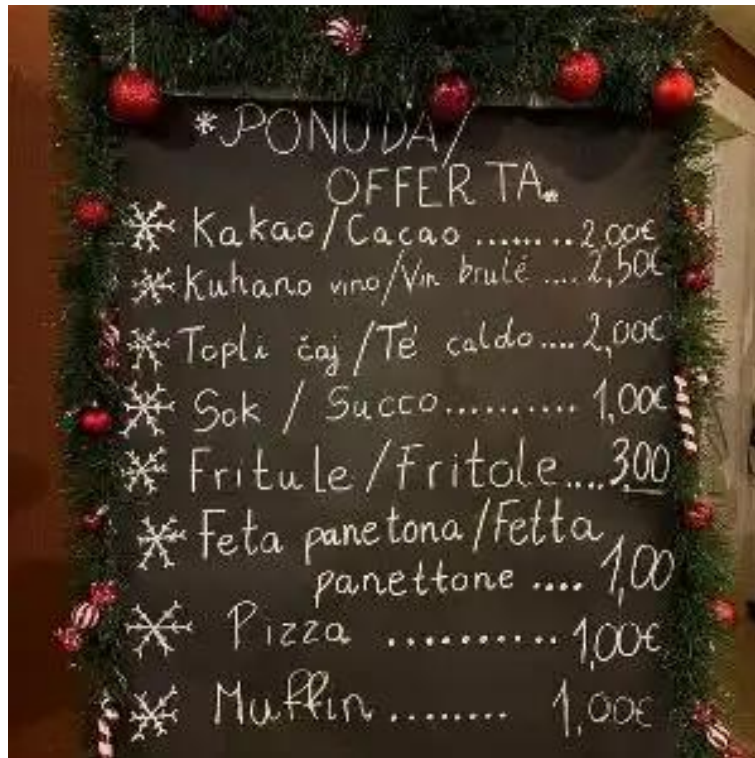 *PONUDA/
OFFERTA
Kakao/Cacao ........ 2,00€
Kuhano vino/Vin brulé .... 2,50€
Topli čaj/Té caldo .... 2,00€
Sok / Succo .......... 1,00€
Fritule/Fritole .... 3,00
Feta panetona/Fetta
panettone .... 1,00
Pizza .......... 1,00€
Muffin ........ 1,00€